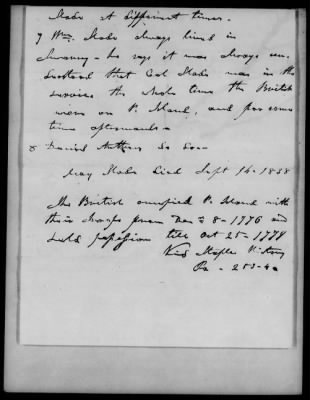 Slade at different times.
7 Wm. Slade always lived in
Swansey - he says it was always un-
derstood that Col Slade was in the
service the whole time the British
were on R. Island, and for some
time afterwards -
8 Daniel So So -
Mary Slade Died Sept 16 - 1838
The British occupied R. Island with
their troops from Dec 8 - 1776 and
held possession till Oct 25 - 1779
History
Pa - 253-4